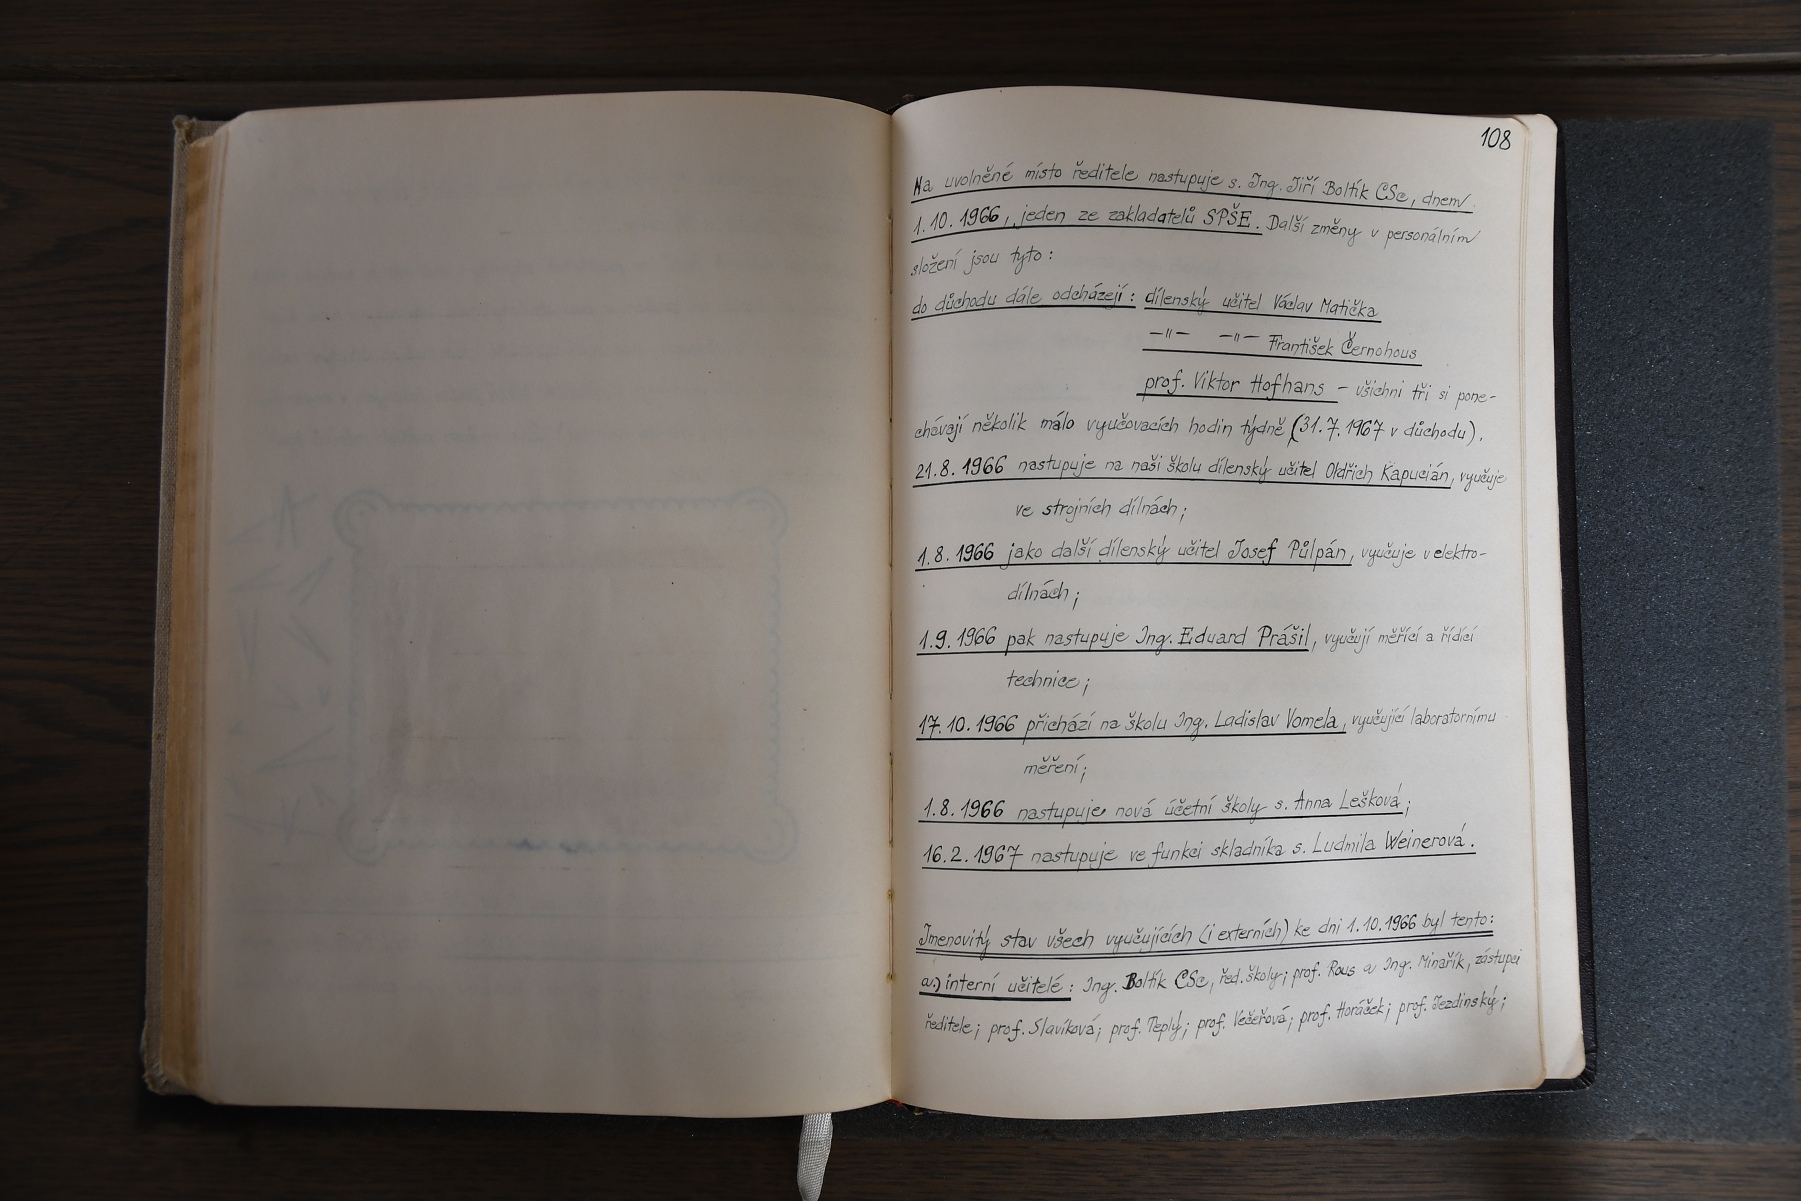 108
Na uvolněné místo ředitele nastupuje s. Ing. Jiří Boltík CSc, dnem
1. 10. 1966, jeden ze zakladatelů SPŠE. Další změny v personálním
složení jsou tyto:
do důchodu dále odcházejí: dílenský učitel Václav Matička
—"— —"— František Černohous
prof. Viktor Hofhans – všichni tři si pone-
chávají několik málo vyučovacích hodin týdně (31. 7. 1967 v důchodu).
21. 8. 1966 nastupuje na naši školu dílenský učitel Oldřich Kapucián, vyučuje
ve strojních dílnách;
1. 8. 1966 jako další dílenský učitel Josef Půlpán, vyučuje v elektro-
dílnách;
1. 9. 1966 pak nastupuje Ing. Eduard Prášil, vyučují měřící a řídící
technice;
17. 10. 1966 přichází na školu Ing. Ladislav Vomela, vyučující laboratornímu
měření;
1. 8. 1966 nastupuje nová účetní školy s. Anna Lešková;
16. 2. 1967 nastupuje ve funkci skladníka s. Ludmila Weinerová.
Jmenovitý stav všech vyučujících (i externích) ke dni 1. 10. 1966 byl tento:
a.) interní učitelé: Ing. Boltík CSc, řed. školy; prof. Rous a Ing. Minařík, zástupci
ředitele; prof. Slavíková; prof. Teplý; prof. Večeřová; prof. Horáček; prof. Jezdinský;